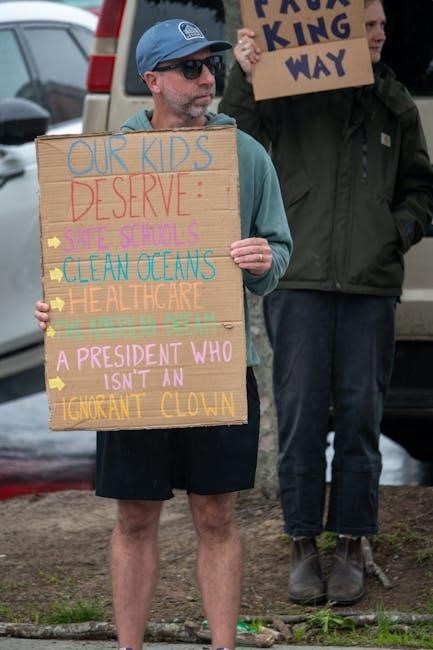 FAUX
KING
WAY
OUR KIDS
DESERVE:
SAFE SCHOOLS
CLEAN OCEANS
HEALTHCARE
THE AMERICAN DREAM
A PRESIDENT WHO
ISN'T AN
IGNORANT CLOWN